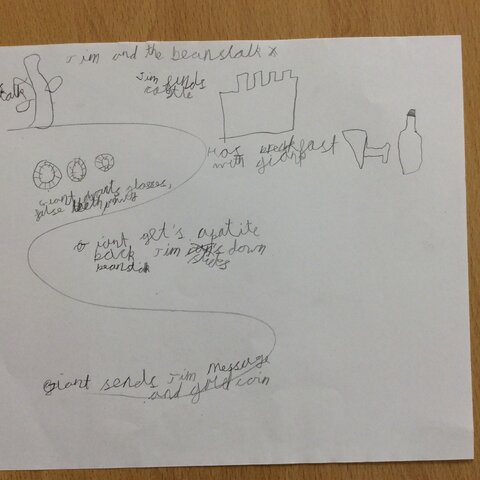 Jim and the beanstalk
stalk
Jim finds
castle
Has breakfast
with giant
Giant wants glasses,
false teeth
Giant get's apatite
back Jim down
beanstalk slides
Giant sends Jim message
and gold coin